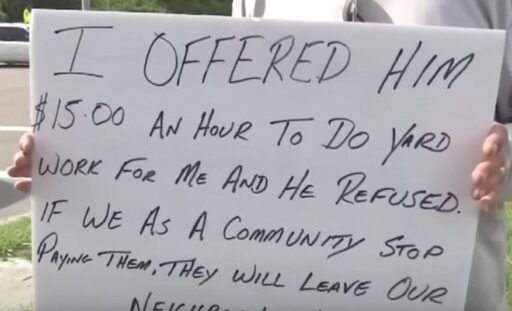 I OFFERED HIM
$15.00 AN HOUR TO DO YARD
WORK FOR ME AND HE REFUSED.
IF WE AS A COMMUNITY STOP
PAYING THEM, THEY WILL LEAVE OUR